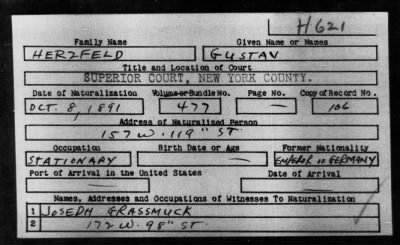 H621
Family Name Given Name or Names
HERZFELD GUSTAV
Title and Location of Court
SUPERIOR COURT, NEW YORK COUNTY.
Date of Naturalization Volume or Bundle No. Page No. Copy of Record No.
OCT. 8, 1891 477 — 106
Address of Naturalized Person
157 W. 119" ST.
Occupation Birth Date or Age Former Nationality
STATIONARY — EMPEROR OF GERMANY
Port of Arrival in the United States Date of Arrival
— —
Names, Addresses and Occupations of Witnesses To Naturalization
1 JOSEPH GRASSMUCK
2 172 W. 98" ST.